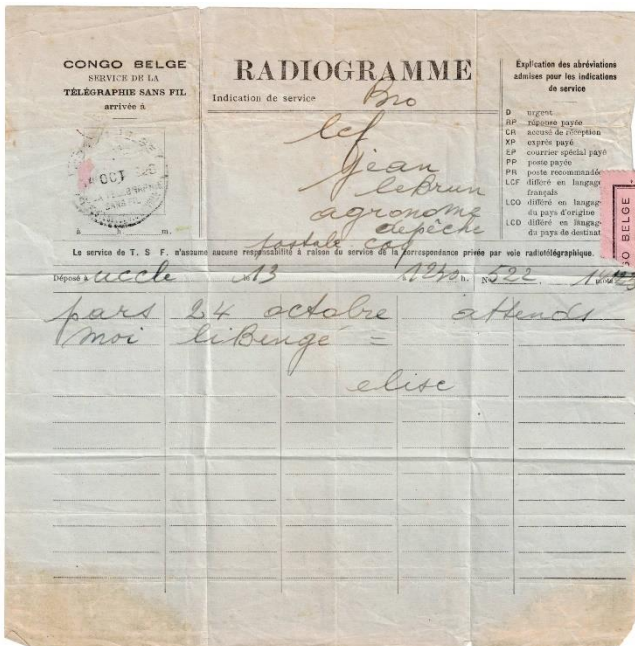 CONGO BELGE
SERVICE DE LA
TÉLÉGRAPHIE SANS FIL
arrivée à
à h. m.
RADIOGRAMME
Indication de service Bro
lcf
jean
lebrun
agronome
dépêche
postale coq
Explication des abréviations
admises pour les indications
de service
D urgent
RP réponse payée
CR accusé de réception
XP exprès payé
EP courrier spécial payé
PP poste payée
PR poste recommandée
LCF différé en langage
français
LCO différé en langage
du pays d'origine
LCD différé en langage
du pays de destinat
GO BELGE
Le service de T. S. F. n'assume aucune responsabilité à raison du service de la correspondance privée par voie radiotélégraphique.
Déposé à uccle le 13 1230 h. No 522
pars 24 octobre attends
moi liBengé =
elise